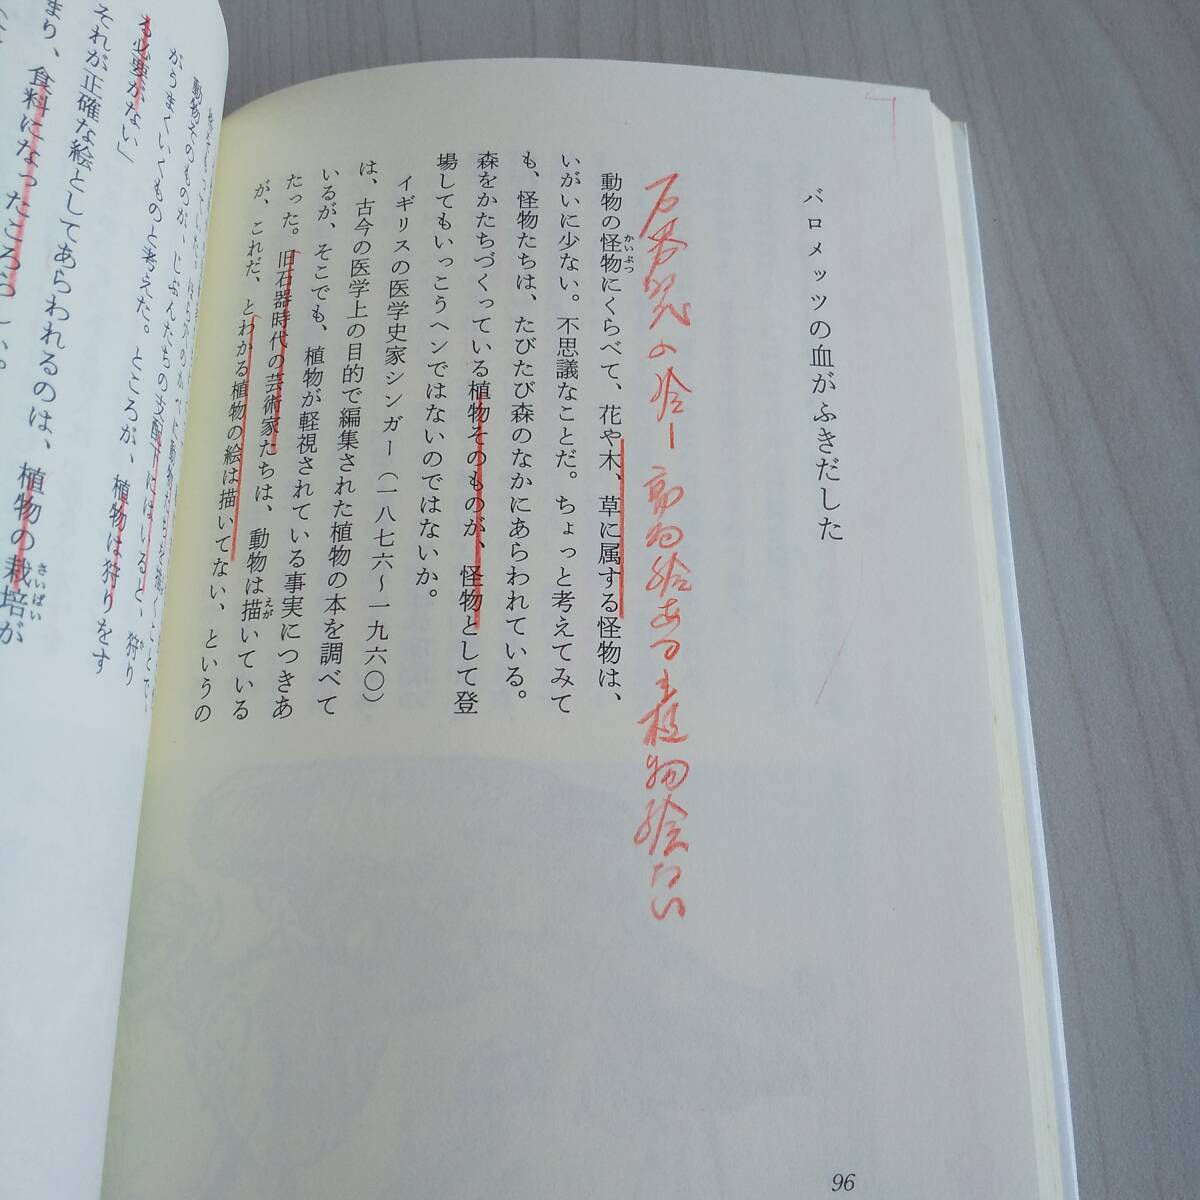 バロメッツの血がふきだした
動物の怪物にくらべて、花や木、草に属する怪物は、
かいぶつ
いがいに少ない。不思議なことだ。ちょっと考えてみて
も、怪物たちは、たびたび森のなかにあらわれている。
森をかたちづくっている植物そのものが、怪物として登
場してもいっこうヘンではないのではないか。
イギリスの医学史家シンガー(一八七六〜一九六〇)
は、古今の医学上の目的で編集された植物の本を調べて
いるが、そこでも、植物が軽視されている事実につきあ
たった。旧石器時代の芸術家たちは、動物は描いている
えが
が、これだ、とわかる植物の絵は描いてない、というの
96
動物そのものが、じぶんたちの支配下にはいると、狩り
か
がうまくいくものと考えた。ところが、植物は狩りをす
る必要がない」
それが正確な絵としてあらわれるのは、植物の栽培が
さいばい
まり、食料になったころらしい。